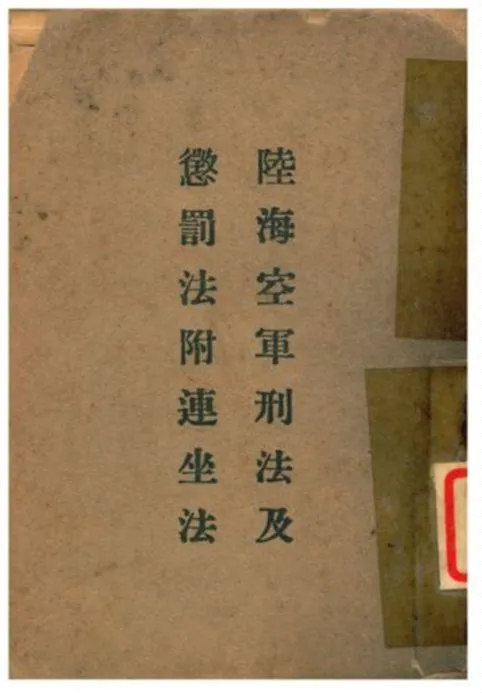 陸海空軍刑法及
懲罰法附連坐法